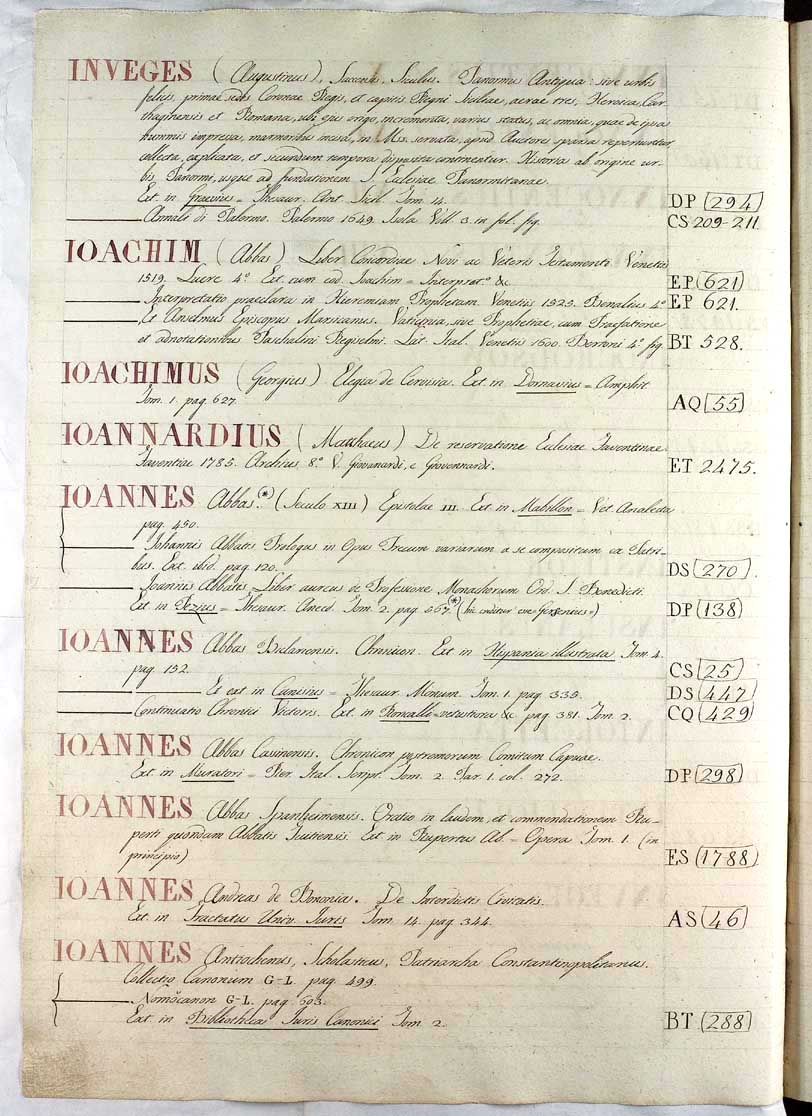 INVEGES (Augustinus), Saccensis Siculus. Panormus Antiqua sive urbis
felicis, primae sedis, Coronae Regis, et capitis Regni Siciliae, aerae tres, Heroica, Car-
thaginensis et Romana, ubi ejus origo, incrementa, varius status, ac omnia, quae de ipsa
nummis impressa, marmoribus incisa, in Mss. servata, apud Auctores sparsa reperiuntur
collecta, explicata, et secundum tempora disposita continentur. Historia ab origine ur-
bis Panormi, usque ad fundationem S. Ecclesiae Panormitanae.
Ext. in Graevius = Thesaur. Ant. Sicil. Tom. 14. DP (294)
Annali di Palermo. Palermo 1649. Isola Voll. 3. in fol. fig. CS 209-211.
IOACHIM (Abbas) Liber Concordiae Novi ac Veteris Testamenti. Venetiis
1519. Luere 4.° Ext. cum eod. Joachim = Interpret.° &c. EP (621)
Interpretatio praeclara in Hieremiam Prophetam. Venetiis 1525. Benalius 4.° EP 621.
Et Anselmus Episcopus Marsicanus. Vaticinia, sive Prophetiae, cum Praefatione
et adnotationibus Paschalini Regiselmi. Lat. Ital. Venetiis 1600. Bertoni 4.° fig. BT 528.
IOACHIMUS (Georgius) Elegia de Cervisia. Ext. in Dornavius = Amphit.
Tom. 1. pag. 627. AQ (55)
IOANNARDIUS (Matthaeus) De reservatione Ecclesiae Faventinae.
Faventiae 1785. Archius 8.° V. Giovanardi, e Giovannardi. ET 2475.
IOANNES Abbas.(*) (Seculo XIII) Epistolae III. Ext. in Mabillon = Vet. Analecta
pag. 450.
Johannis Abbatis Prologus in Opus Trecum variarum a se compositum ex Patri-
bus. Ext. ibid. pag. 120. DS (270).
Joannis Abbatis Liber aureus de Professione Monachorum Ord. S. Benedicti.
Ext. in Pezius = Thesaur. Anecd. Tom. 2. pag. 567.(*) (hic creditur esse Gersenius.) DP (138)
IOANNES Abbas Biclariensis. Chronicon. Ext. in Hispania illustrata Tom. 4.
pag. 152. CS (25)
Et ext. in Canisius = Thesaur. Monum. Tom. 1. pag. 335. DS (447)
Continuatio Chronici Victoris. Ext. in Roncalli = vetustiora &c. pag. 381. Tom. 2. CQ (429)
IOANNES Abbas Cassinensis. Chronicon postremorum Comitum Capuae.
Ext. in Muratori = Rer. Ital. Script. Tom. 2. Par. 1. col. 272. DP (298)
IOANNES Abba Spanheimensis. Oratio in laudem, et commendationem Ru-
perti quondam Abbatis Tuitiensis. Ext. in Rupertus Ab. = Opera Tom. 1. (in
principio) ES (1788)
IOANNES Andreas de Bononia. De Interdictis Civitatis.
Ext. in Tractatus Univ. Juris Tom. 14. pag. 344. AS (46)
IOANNES Antiochenus, Scholasticus, Patriarcha Constantinopolitanus.
Collectio Canonum G-L pag. 499.
Nomocanon G-L. pag. 603.
Ext. in Bibliotheca Juris Canonici Tom. 2. BT (288)